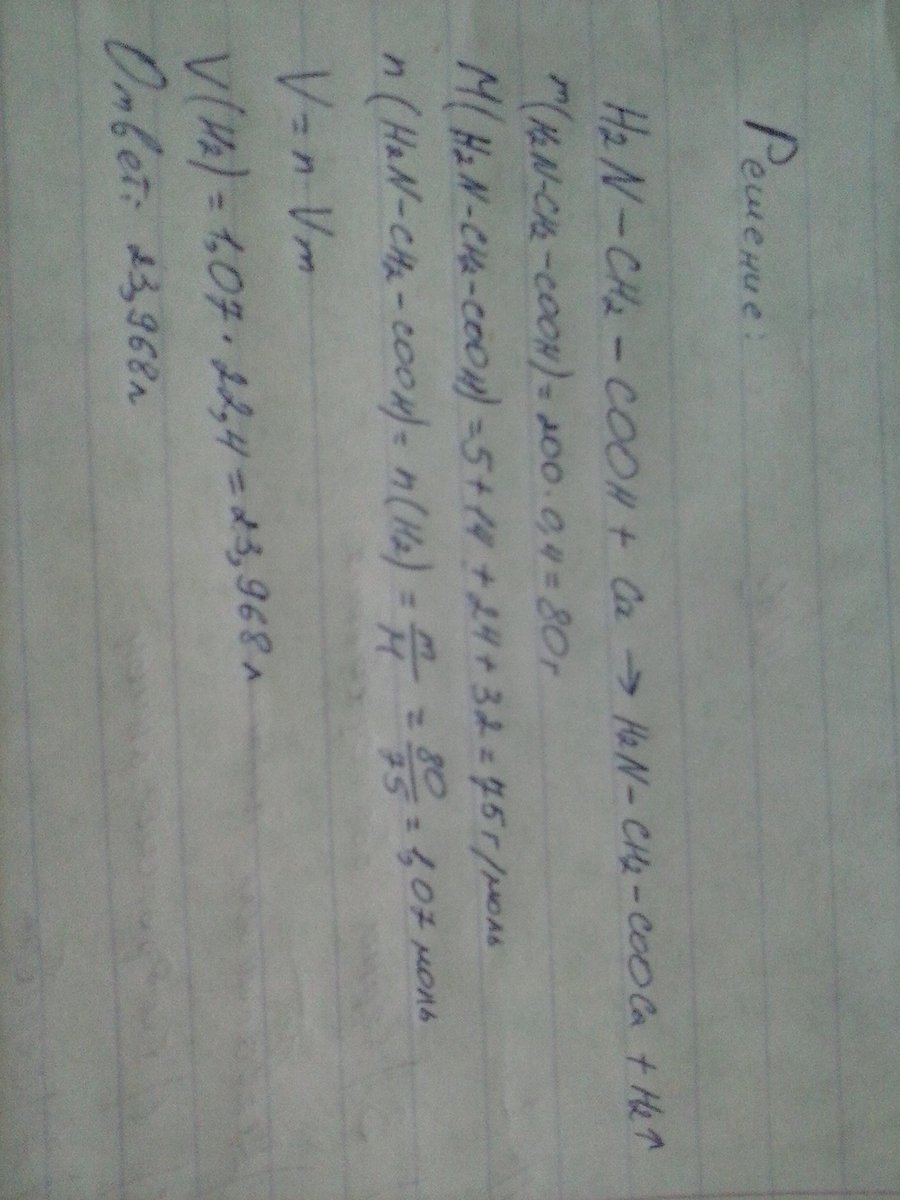 Решение:
H2N-CH2-COOH + Ca → H2N-CH2-COOCa + H2↑
m(H2N-CH2-COOH) = 200·0,4 = 80г
M(H2N-CH2-COOH) = 5+14+24+32 = 75г/моль
n(H2N-CH2-COOH) = n(H2) = m/M = 80/75 = 1,07 моль
V = n Vm
V(H2) = 1,07·22,4 = 23,968 л
Ответ: 23,968л